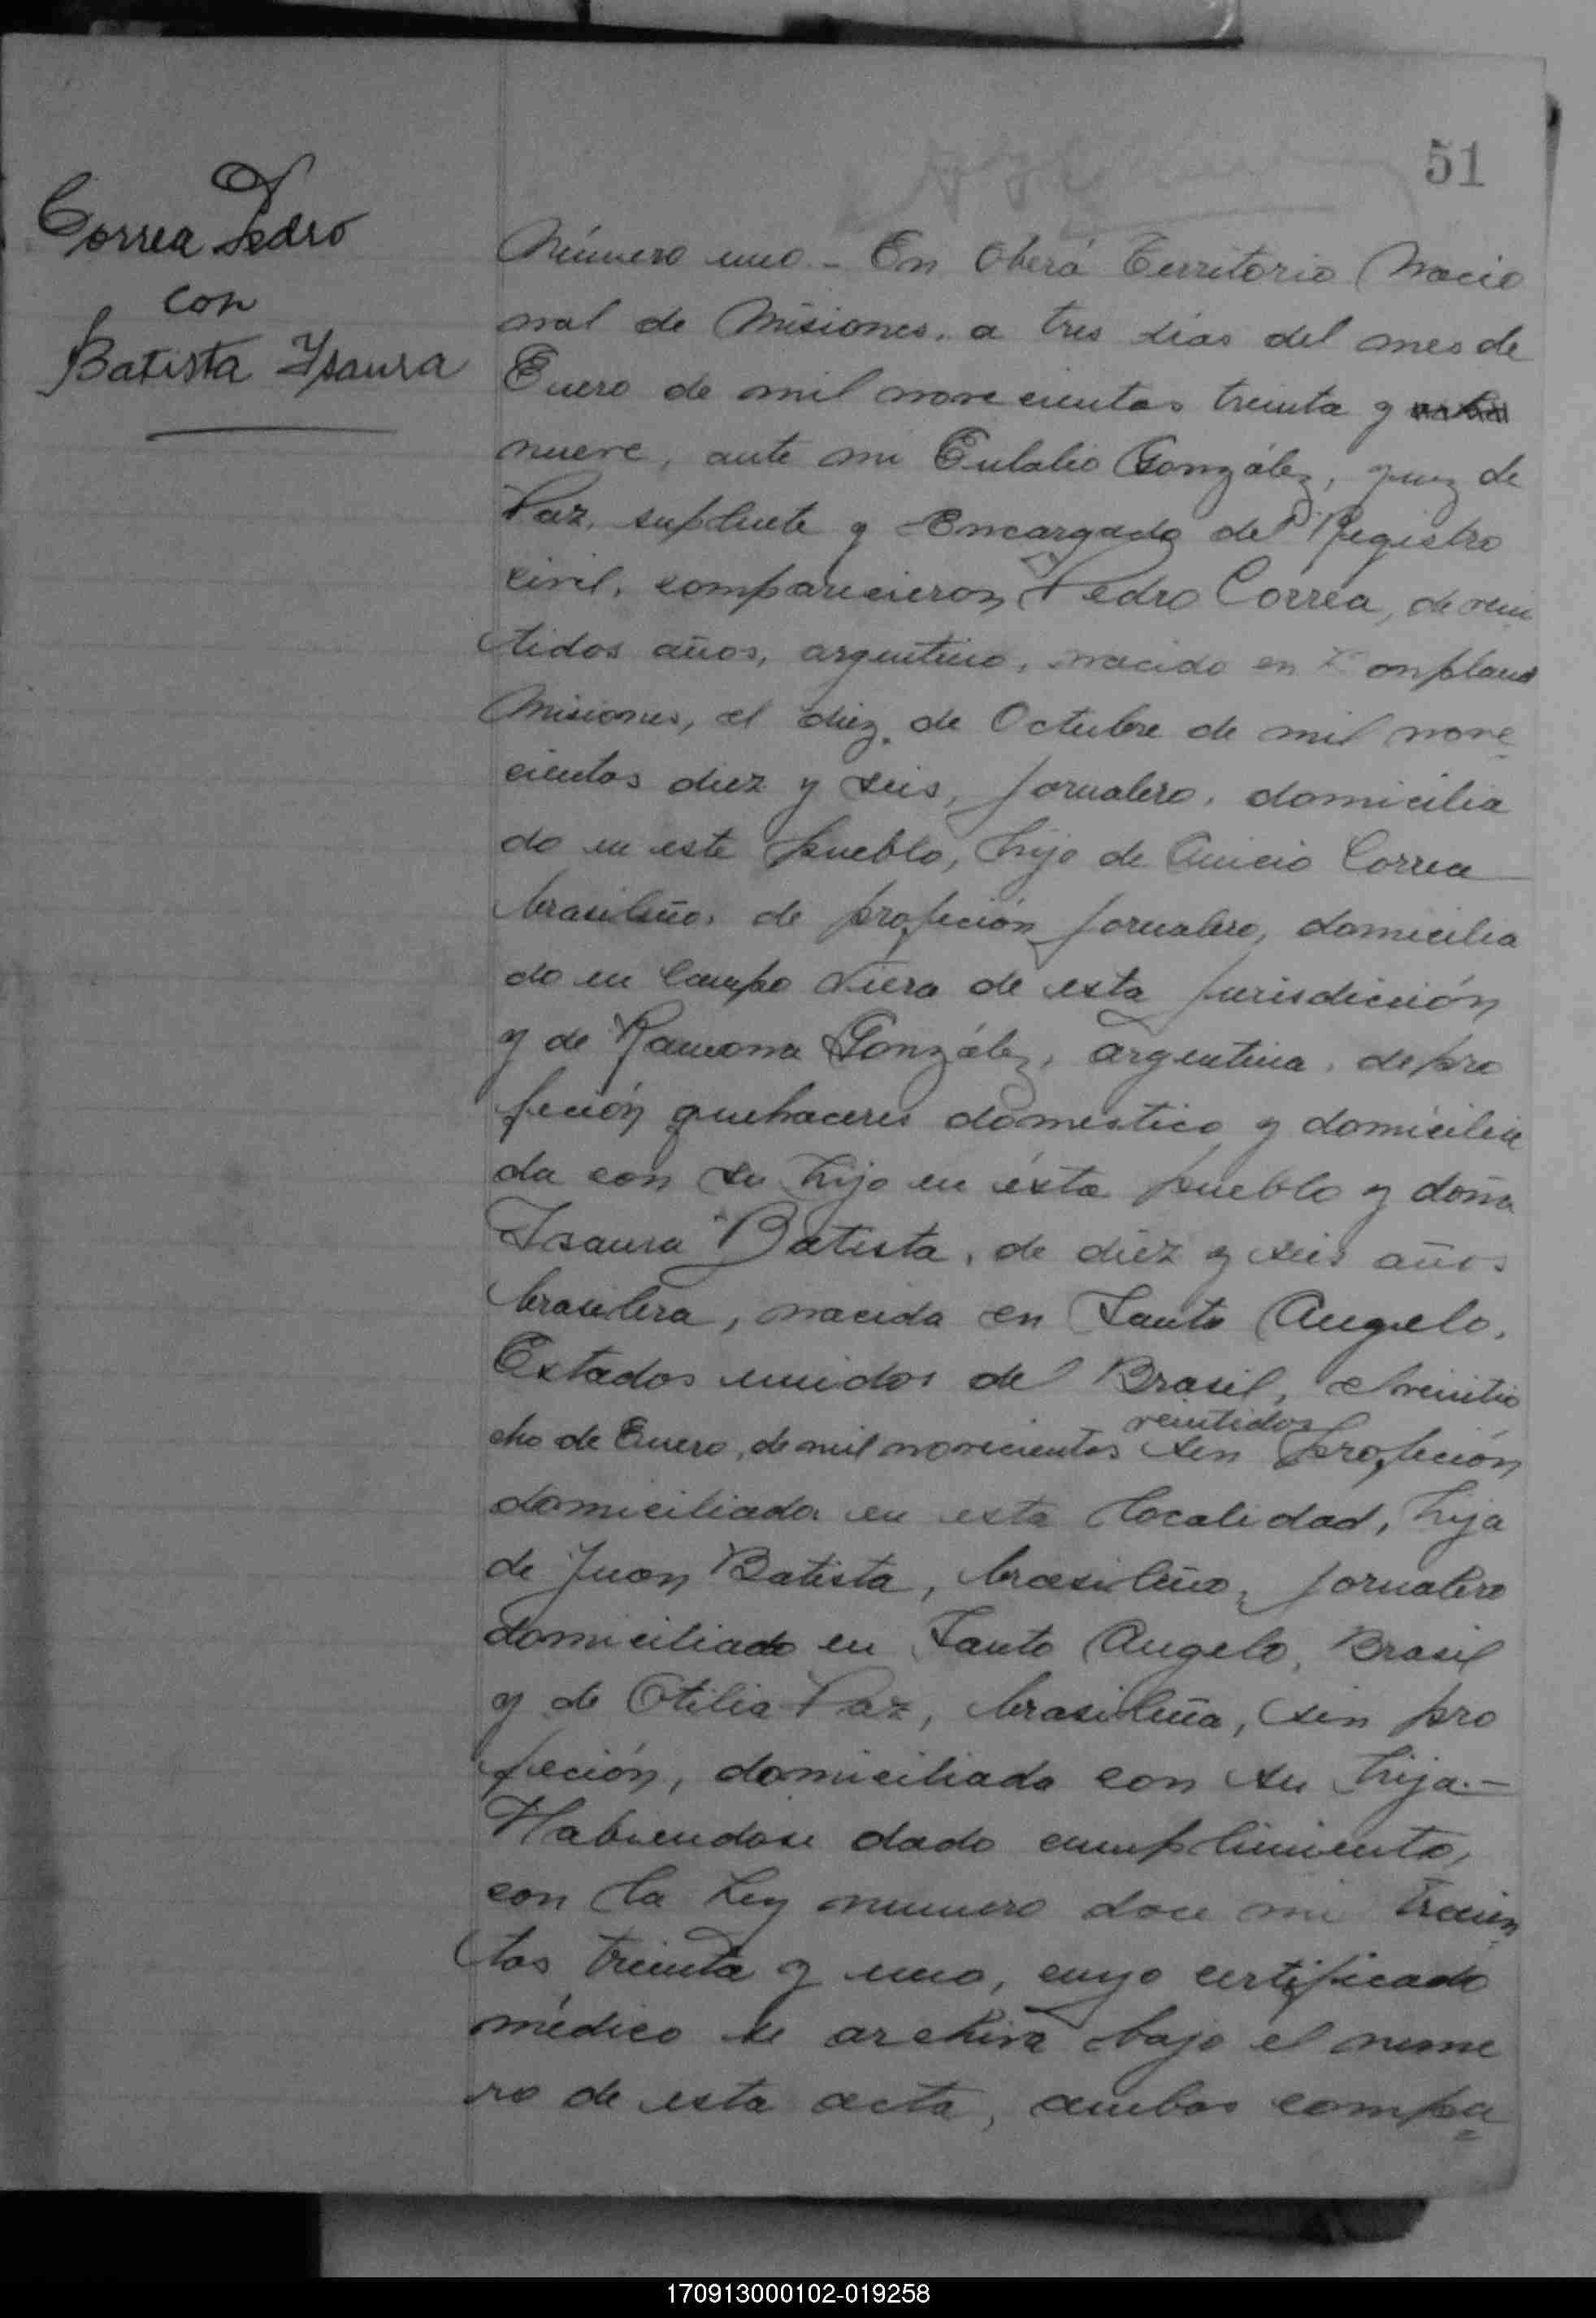 51
Correa Pedro
con
Batista Ysaura
Número uno - En Oberá Territorio Nacio
nal de Misiones, a tres dias del mes de
Enero de mil novecientos treinta y
nueve, ante mi Eulalio González, juez de
Paz, suplente y Encargado del Registro
civil, comparecieron Pedro Correa, de vein
tidos años, argentino, nacido en Bonpland
Misiones, el diez de Octubre de mil nove
cientos diez y seis, jornalero, domicilia
do en este pueblo, hijo de Anicio Correa
brasileño, de profeción jornalero, domicilia
do en Campo Viera de esta jurisdicción
y de Ramona González, argentina, de pro
feción quehaceres domestico y domicilia
da con su hijo en ésta pueblo y doña
Isaura Batista, de diez y seis años
brasilera, nacida en Santo Angelo,
Estados unidos del Brasil, el veintio
cho de Enero, de mil novecientos veintidos sin profeción
domiciliada en esta localidad, hija
de Juan Batista, brasileño, jornalero
domiciliado en Santo Angelo, Brasil
y de Otilia Paz, brasileña, sin pro
feción, domiciliada con su hija.-
Habiendose dado cumplimiento,
con la Ley numero doce mil trecien
tos treinta y uno, cuyo certificado
médico se archiva bajo el nume
ro de esta acta, ambos compa
170913000102-019258